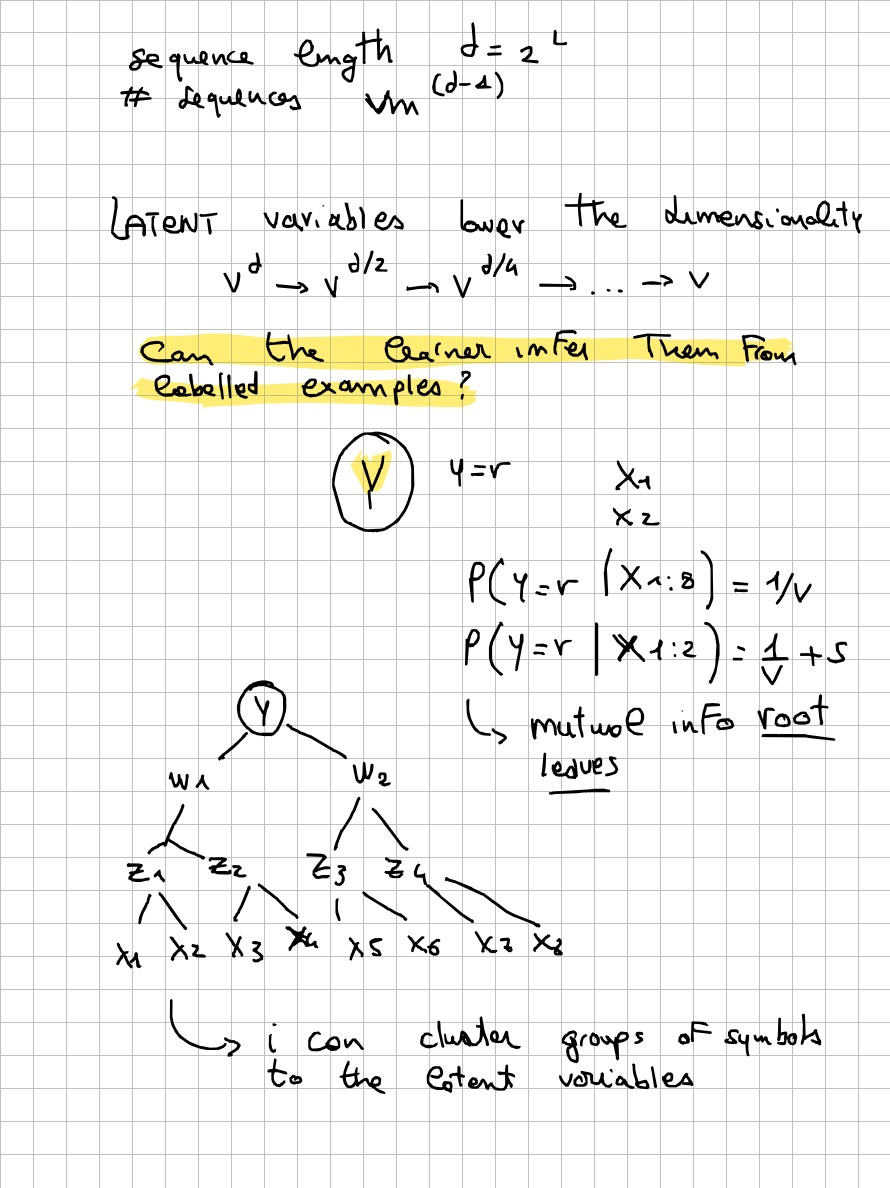 sequence length d = 2^L
# sequences vm^(d-1)
LATENT variables lower the dimensionality
v^d → v^d/2 → v^d/4 → ... → v
Can the learner infer Them From
labelled examples?
Y y=r X1
X2
P(y=r | X1:8) = 1/v
P(y=r | X1:2) = 1/v + s
↳ mutual info root
leaves
Y
W1 W2
Z1 Z2 Z3 Z4
X1 X2 X3 X4 X5 X6 X7 X8
↳ i can cluster groups of symbols
to the latent variables